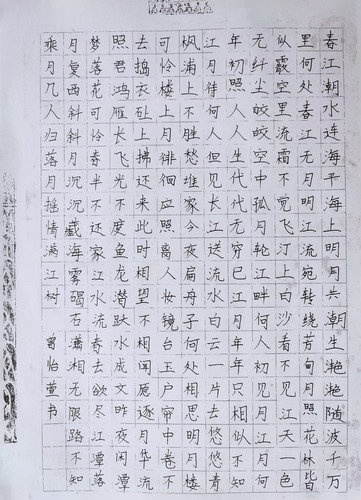 春江潮水连海平海上明月共潮生滟滟随波千万
里何处春江无月明江流宛转绕芳甸月照花林皆
似霰空里流霜不觉飞汀上白沙看不见江天一色
无纤尘皎皎空中孤月轮江畔何人初见月江月何
年初照人人生代代无穷已江月年年只相似不知
江月待何人但见长江送流水白云一片去悠悠青
枫浦上不胜愁谁家今夜扁舟子何处相思明月楼
可怜楼上月徘徊应照离人妆镜台玉户帘中卷不
去捣衣砧上拂还来此时相望不相闻愿逐月华流
照君鸿雁长飞光不度鱼龙潜跃水成文昨夜闲潭
梦落花可怜春半不还家江水流春去欲尽江潭落
月复西斜斜月沉沉藏海雾碣石潇湘无限路不知
乘月几人归落月摇情满江树
曾怡萱书